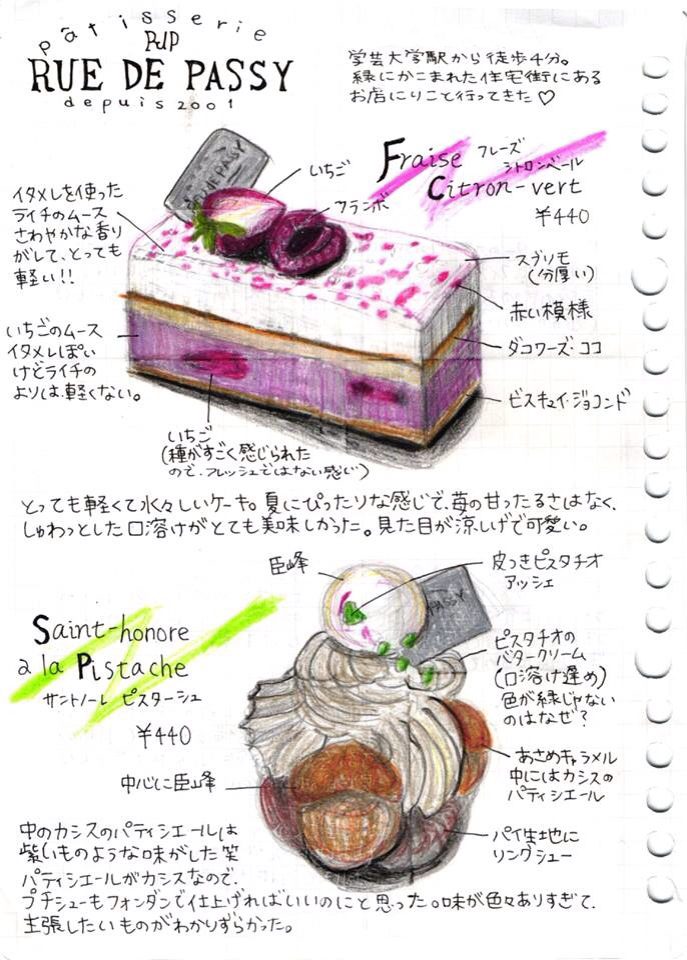 pâtisserie
PdP
RUE DE PASSY
depuis 2001
学芸大学駅から徒歩4分。
緑にかこまれた住宅街にある
お店にりこと行ってきた♡
Fraise フレーズ
Citron-vert シトロンベール
¥440
いちご
フランボ
イタメレを使った
ライチのムース
さわやかな香り
がして、とっても
軽い!!
スブリモ
(分厚い)
赤い模様
ダコワーズ・ココ
ビスキュイ・ジョコンド
いちごのムース
イタメレぽい
けどライチの
よりは軽くない。
いちご
(種がすごく感じられた
ので、フレッシュではない感じ)
とっても軽くて水々しいケーキ。夏にぴったりな感じで、苺の甘ったるさはなく、
しゅわっとした口溶けがとても美味しかった。見た目が涼しげで可愛い。
臣峰
皮つきピスタチオ
アッシェ
PASSY
Saint-honore
a la Pistache
サントノーレ ピスターシュ
¥440
ピスタチオの
バタークリーム
(口溶け遅め)
色が緑じゃない
のはなぜ?
あさめキャラメル
中にはカシスの
パティシエール
中心に臣峰
パイ生地に
リングシュー
中のカシスのパティシエールは
紫いものような味がした笑
パティシエールがカシスなので、
プチシューもフォンダンで仕上げればいいのにと思った。味が色々ありすぎて、
主張したいものがわかりずらかった。